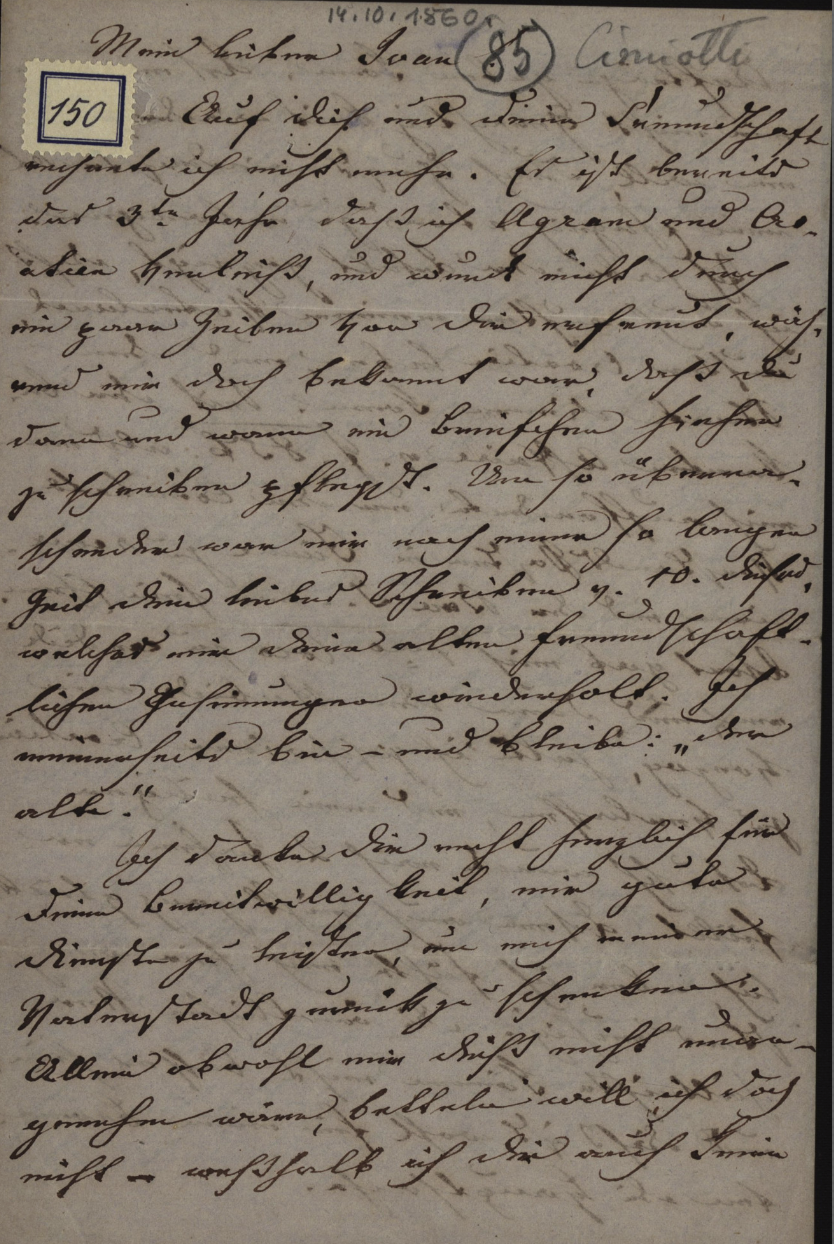 14.10.1860.
Mein lieber Ivan (85) Cuniotti
150
Auf dich und deine Freundschaft
rechnete ich nicht mehr. Es ist bereits
das 3te Jahr daß ich Agram und Cro-
atien verließ, und wurde nicht durch
ein paar Zeilen von dir erfreut, wäh-
rend mir doch bekannt war, daß du
dann und wann ein Briefchen hieher
zu schreiben pflegst. Um so überra-
schender war mir nach einer so langen
Zeit dein liebes Schreiben v. 10. dieses,
welches mir deine alten freundschaft-
lichen Gesinnungen wiederholt. Ich
meinerseits bin – und bleibe: „der
alte."
Ich danke dir recht herzlich für
deine Bereitwilligkeit, mir gute
Dienste zu leisten, um mich meiner
Vaterstadt zurück zu schenken.
Allein obwohl mir dieß nicht unan-
genehm wäre, betteln will ich doch
nicht – weßhalb ich dir auch deine